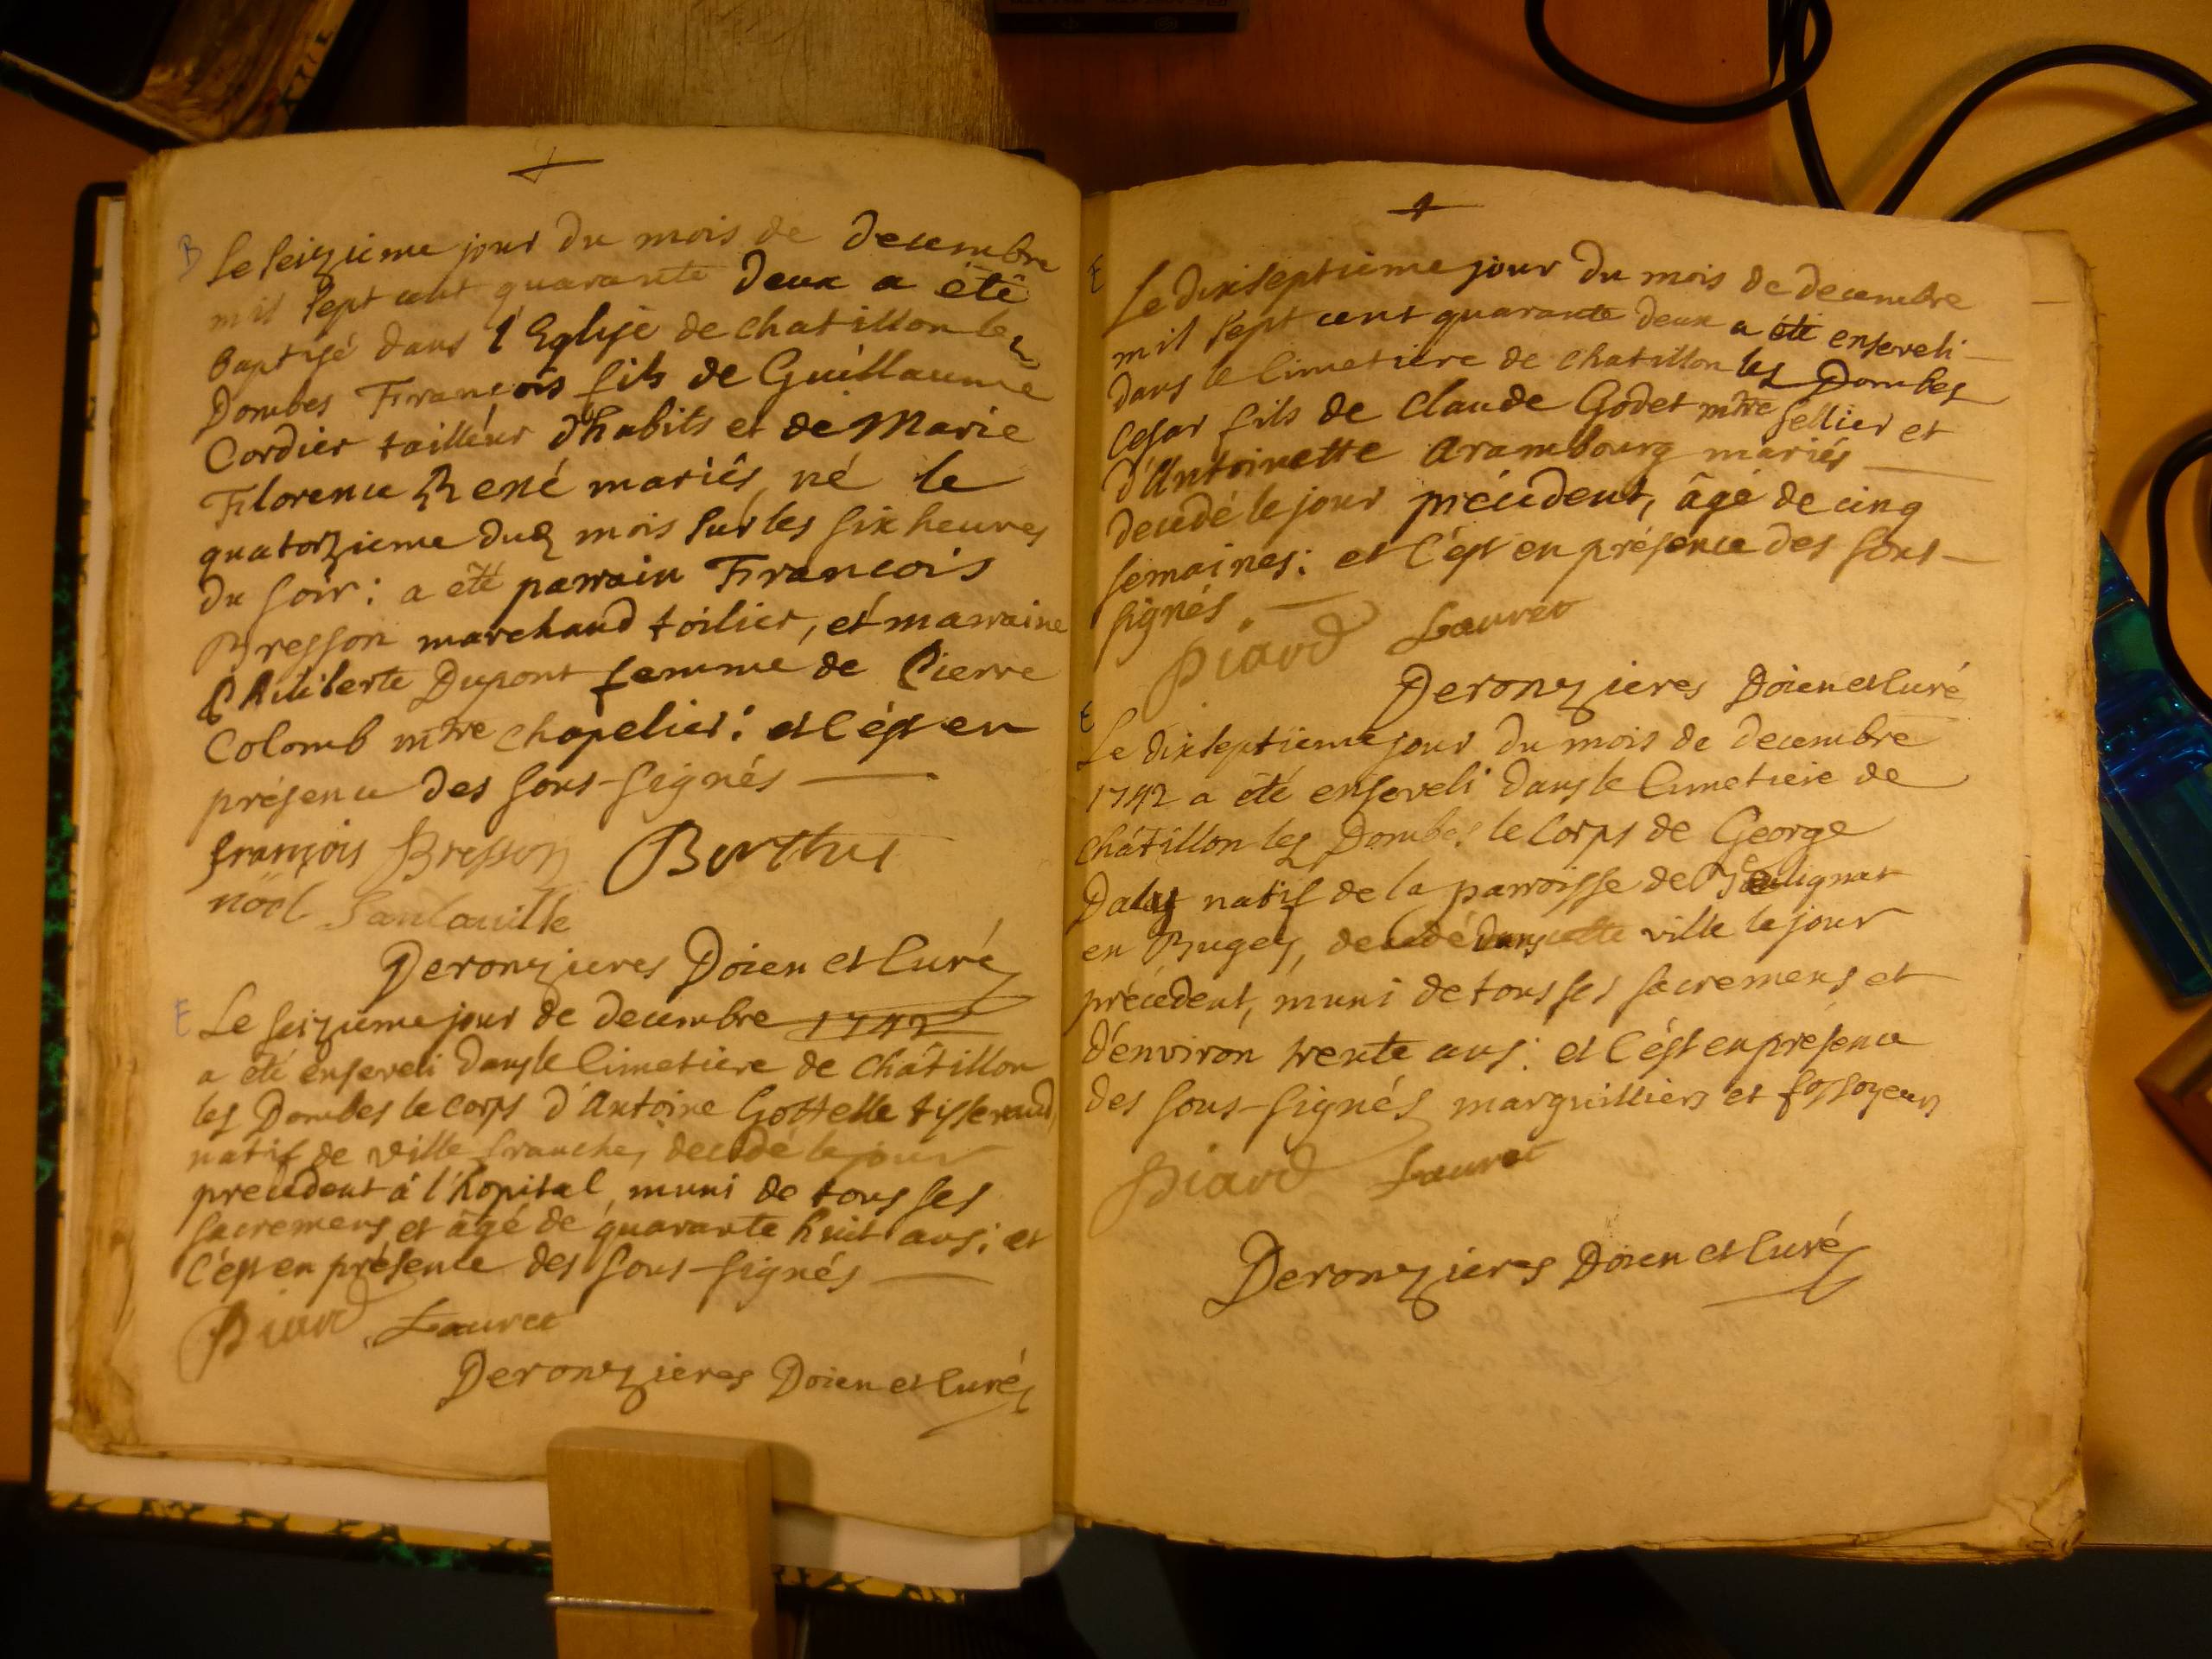 B
Le seizieme jour du mois de decembre
mil sept cent quarante deux a été
baptisé dans l'Eglise de chatillon les
Dombes François fils de Guillaume
Cordier tailleur d'habits et de Marie
Florence René mariés, né le
quatorzieme dud mois sur les six heures
du soir : a été parrain François
Bresson marchand toilier, et marraine
Philiberte Dupont femme de Pierre
Colomb mtre chapelier : et c'est en
présence des sous-signés
françois Bresson Burthus
nöel
Deronzieres Doien et Curé
E
Le seizieme jour de decembre 1742
a été enseveli dans le Cimetiere de Châtillon
les Dombes le corps d'Antoine Gottelle tisserand
natif de ville franche, decedé le jour
precedent à l'hopital, muni de tous ses
sacremens, et âgé de quarante huit ans ; et
c'est en présence des sous-signés
Piard Lauret
Deronzieres Doien et Curé
E
Le dixseptieme jour du mois de decembre
mil sept cent quarante deux a été enseveli
dans le Cimetiere de chatillon les Dombes
Cesar fils de Claude Godet mtre sellier et
d'Antoinette Arambourg mariés
decedé le jour précedent, âgé de cinq
semaines : et c'est en présence des sous-
signés.
Piard Lauret
Deronzieres Doien et Curé
E
Le dixseptieme jour du mois de decembre
1742 a été enseveli dans le Cimetiere de
châtillon les Dombes le corps de George
natif de la parroisse de
en Bugey, decedé dans cette ville le jour
précedent, muni de tous ses sacremens, et
d'environ trente ans : et c'est en présence
des sous-signés marguilliers et fossoyeurs
Piard Lauret
Deronzieres Doien et Curé